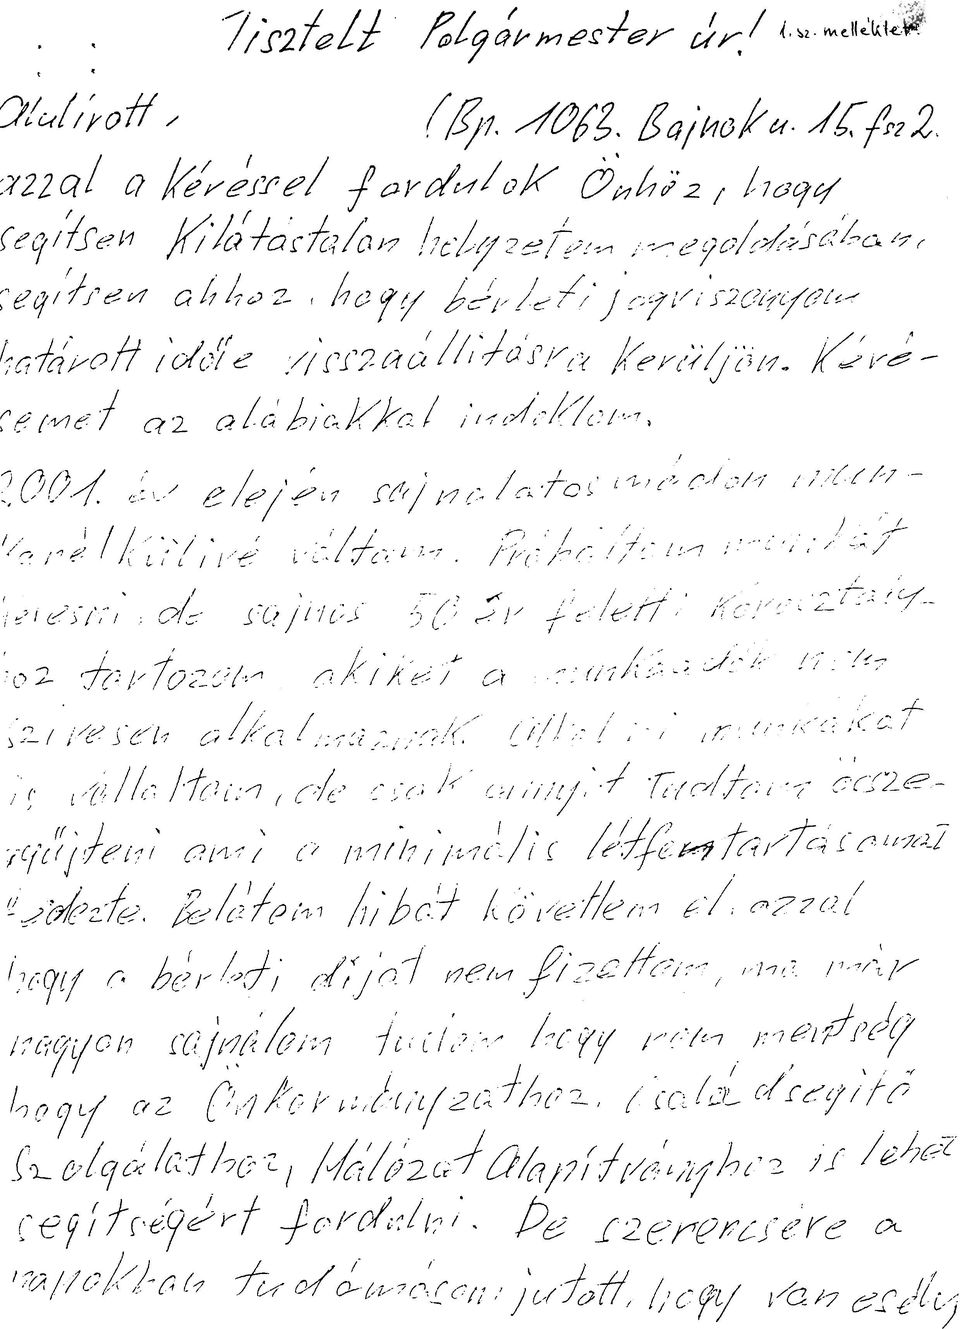 Tisztelt Polgármester úr! 1. sz. melléklet
Alulírott, (Bp. 1063. Bajnok u. 15. fsz 2.
azzal a kéréssel fordulok Önhöz, hogy
segítsen kilátástalan helyzetem megoldásában,
segítsen ahhoz, hogy bérleti jogviszonyom
határott időre visszaállításra kerüljön. Kéré-
semet az alábiakkal indoklom.
2001. év elején sajnalatos módon mun-
kanélkülivé váltam. Próbáltam munkát
keresni, de sajnos 50 év feletti korosztály-
hoz tartozom, akiket a munkaadók nem
szivesen alkalmaznak. Alkalmi munkákat
is vállaltam, de csak annyit tudtam össze-
gyűjteni ami a minimális létfentartásomat
fedezte. Belátom hibát követtem el, azzal
hogy a bérleti díjat nem fizettem, ma már
nagyon sajnálom tudom hogy nem mentség
hogy az Önkormányzathoz, Családsegítő
Szolgálathoz, Hálózat Alapítványhoz is lehet
segítségért fordulni. De szerencsére a
napokban tudomásomra jutott, hogy van esély,